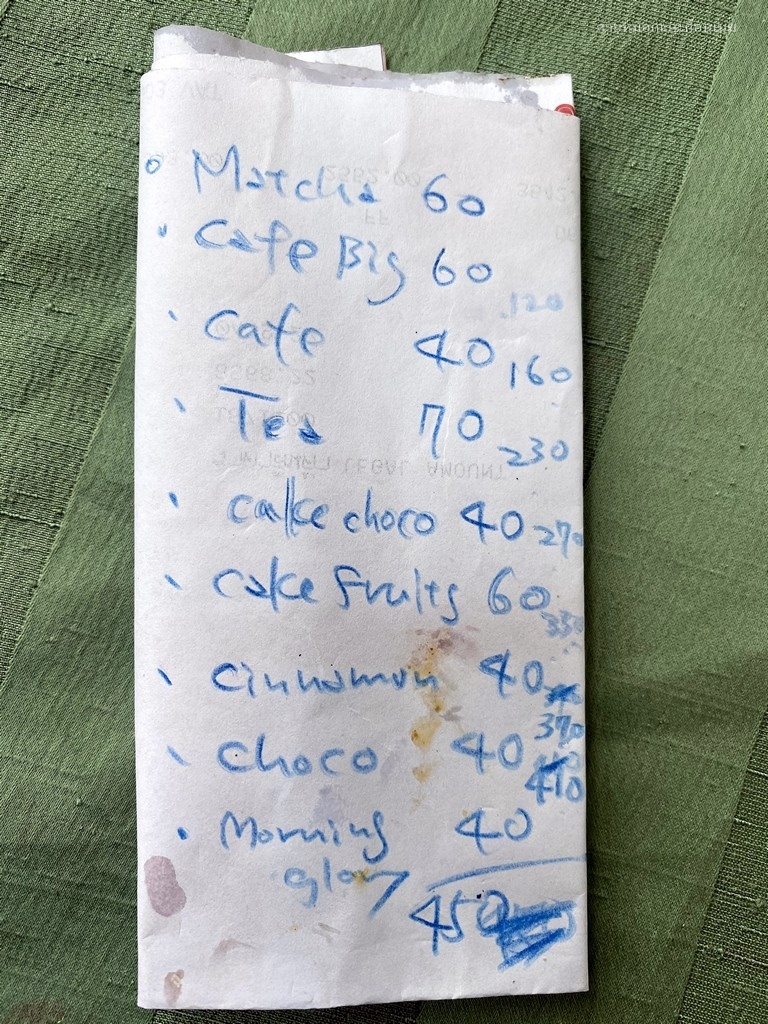 Matcha 60
Cafe Big 60
120
Cafe 40 160
Tea 70 230
cake choco 40 270
cake fruits 60
330
cinnamon 40
370
choco 40
410
Morning 40
glory
450